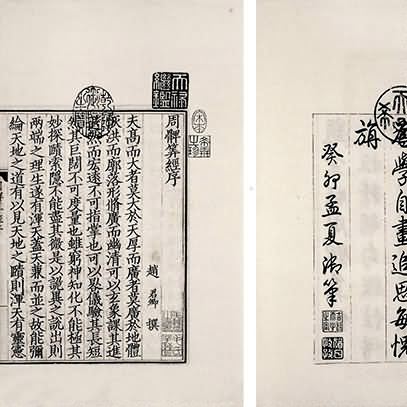 學自畫追思每
旗
癸卯孟夏御筆
周髀算經序
趙君卿撰
夫高而大者莫大於天厚而廣者莫廣於地體
恢洪而廓落形脩廣而幽清可以玄象課其進
退然而宏遠不可指掌也可以晷儀驗其長短
然其巨闊不可度量也雖窮神知化不能極其
妙探賾索隱不能盡其微是以詭異之說出則
兩端之理生遂有渾天蓋天兼而並之故能彌
綸天地之道有以見天地之賾則渾天有靈憲
天祿繼鑑